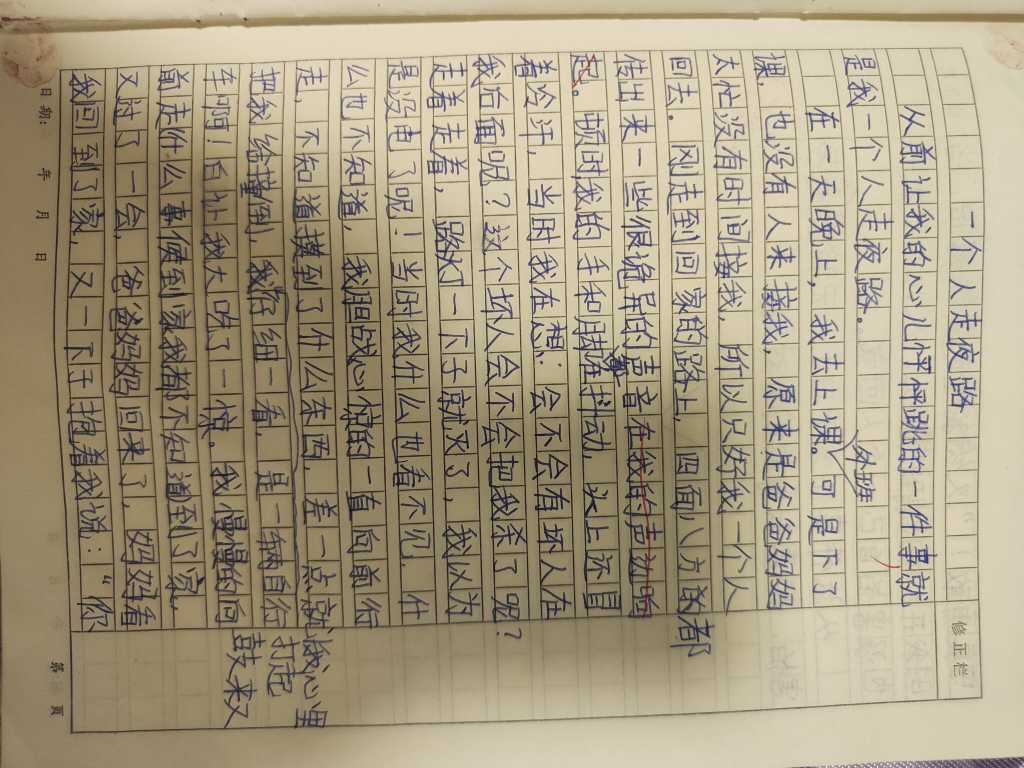 一个人走夜路
修正栏
从前让我的心儿怦怦跳的一件事就
是我一个人走夜路。
外班
在一天晚上，我去上课。可是下了
课，也没有人来接我，原来是爸爸妈妈
太忙没有时间接我，所以只好我一个人
回去。刚走到回家的路上，四面八方的都
传出来一些很诡异的声音在我的声边响
起。顿时我的手和脚在抖动，头上还冒
着冷汗，当时我在想：会不会有坏人在
我后面呢？这个坏人会不会把我杀了呢？
走着走着，路灯一下子就灭了，我以为
是没电了呢！当时我什么也看不见，什
么也不知道，我胆战心惊的一直向前行
走，不知道撞到了什么东西，差一点就
我心里
把我给撞倒，我仔细一看，是一辆自行
打起
车啊！白让我大吃了一惊。我慢慢的向
鼓来又
前走什么事使到家我都不知道到了家，
又过了一会，爸爸妈妈回来了，妈妈看
我回到了家，又一下子抱着我说：“你
日期： 年 月 日
第 页